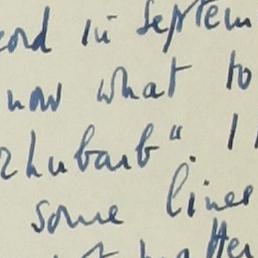 cord in Septem
now what to
rhubarb". I
some lines